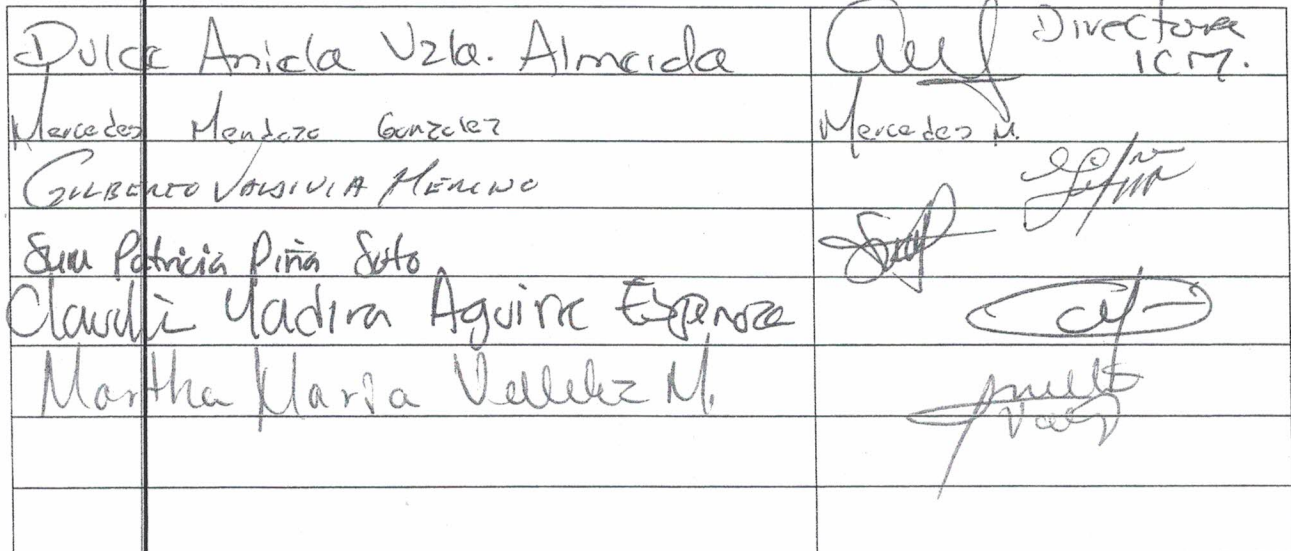 Dulce Aniela Vzla. Almeida Directora
ICM.
Mercedes Mendoza Gonzalez Mercedes M.
GILBERTO VALDIVIA MERINO
Patricia Piña Soto
Claudia Yadira Aguirre Espinoza
Martha Maria M.